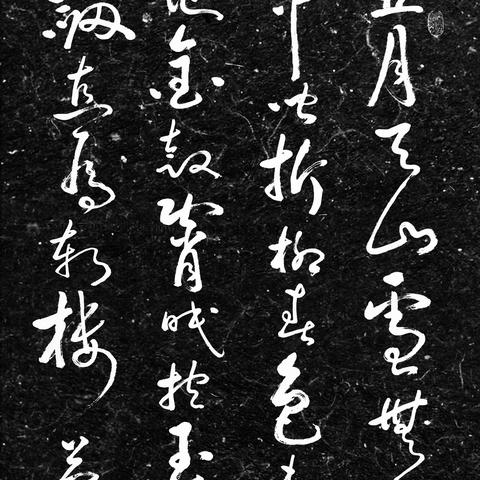 五月天山雪無
中聞折柳春色
隨金鼓宵眠抱玉
劍直為斬樓蘭